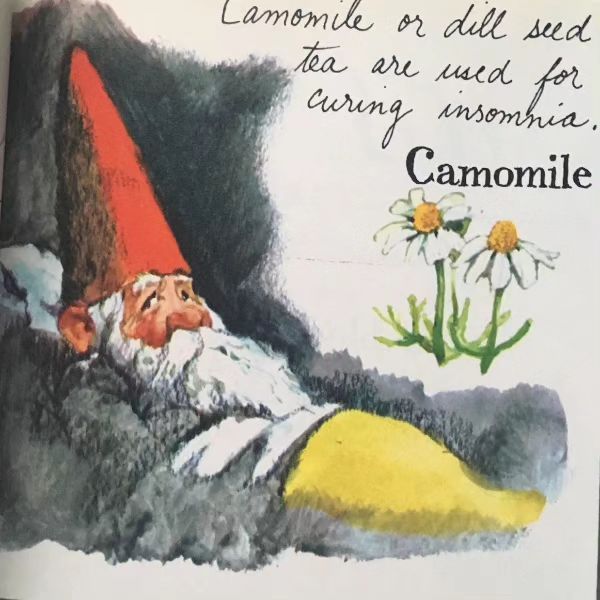 Camomile or dill seed
tea are used for
curing insomnia.
Camomile